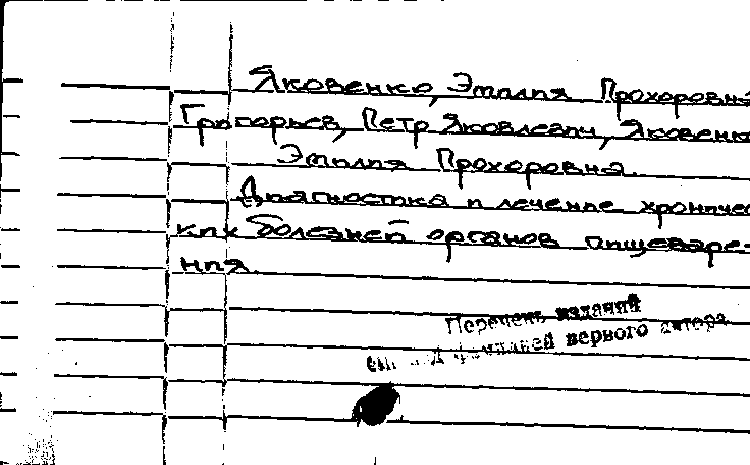 Яковенко, Эмилия Прохоровна
Григорьев, Петр Яковлевич, Яковенко
Эмилия Прохоровна.
Диагностика и лечение хроничес-
ких болезней органов пищеваре-
ния.
Перечень изданий
см. под фамилией первого автора